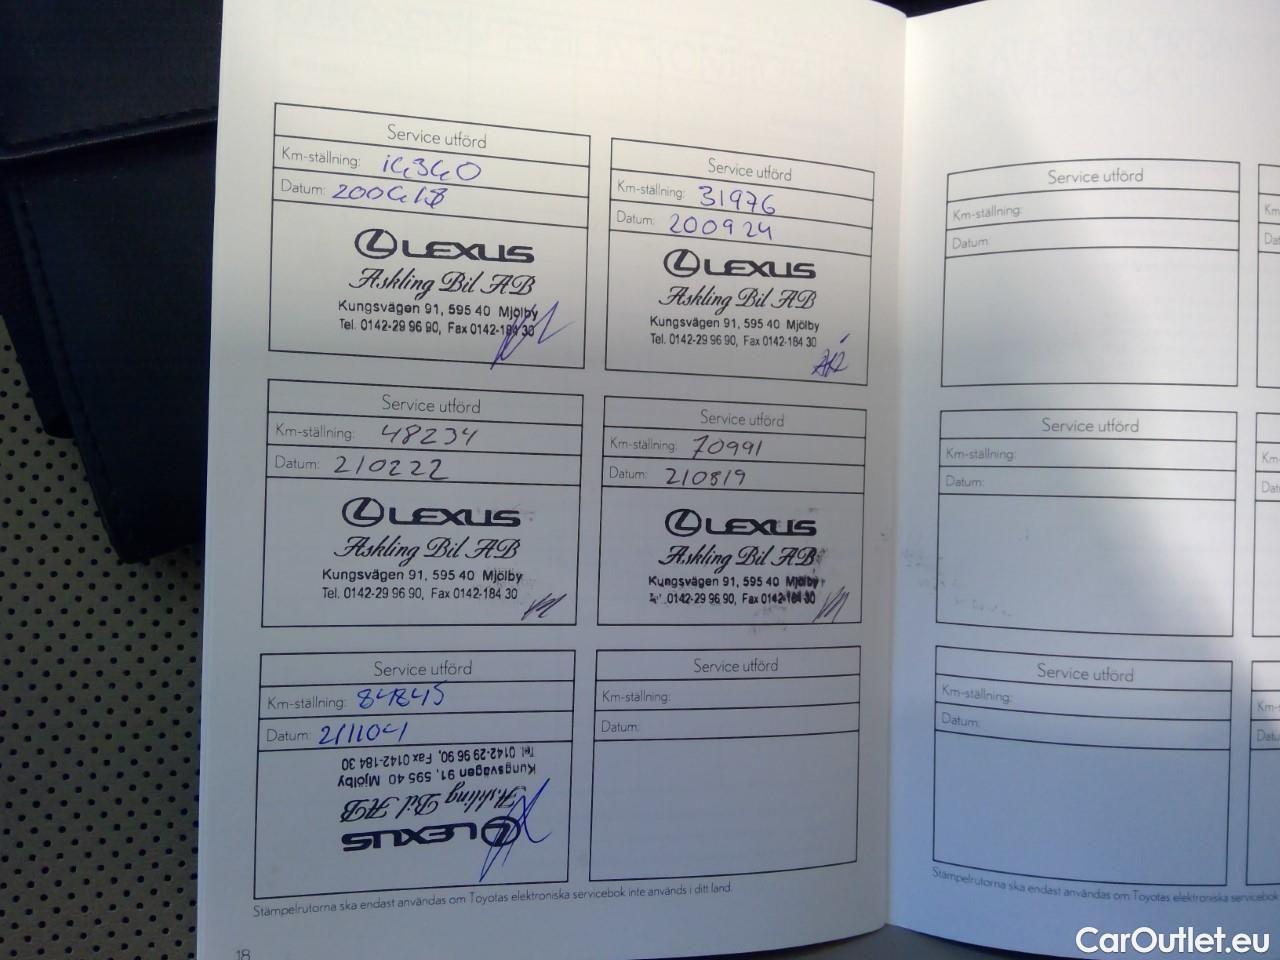 Service utförd
Km-ställning: 14340
Datum: 200418
LEXUS
Askling Bil AB
Kungsvägen 91, 595 40 Mjölby
Tel. 0142-29 96 90, Fax 0142-184 30
Service utförd
Km-ställning: 31976
Datum: 200924
LEXUS
Askling Bil AB
Kungsvägen 91, 595 40 Mjölby
Tel. 0142-29 96 90, Fax 0142-184 30
Service utförd
Km-ställning: 48234
Datum: 210222
LEXUS
Askling Bil AB
Kungsvägen 91, 595 40 Mjölby
Tel. 0142-29 96 90, Fax 0142-184 30
Service utförd
Km-ställning: 70991
Datum: 210819
LEXUS
Askling Bil AB
Kungsvägen 91, 595 40 Mjölby
0142-29 96 90, Fax 0142-184 30
Service utförd
Km-ställning: 84845
Datum: 211104
LEXUS
Askling Bil AB
Kungsvägen 91, 595 40 Mjölby
Tel. 0142-29 96 90, Fax 0142-184 30
Service utförd
Km-ställning:
Datum:
Stämpelrutorna ska endast användas om Toyotas elektroniska servicebok inte används i ditt land.
18
Service utförd
Km-ställning:
Datum:
Service utförd
Km-ställning:
Datum:
Service utförd
Km-ställning:
Datum:
Stämpelrutorna ska endast användas om Toyotas elektroniska servicebok
CarOutlet.eu